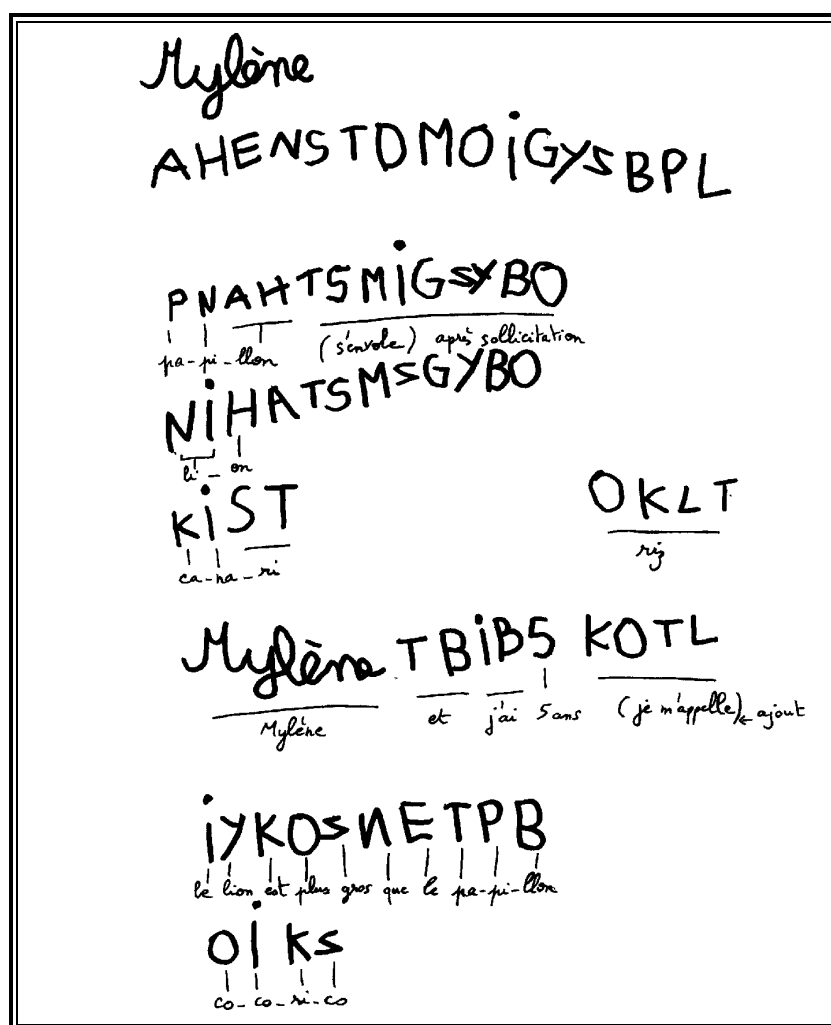 Mylène
AHENSTDMOiGYSBPL
PNAHTSMiGSYBO
pa-pi-llon (s'envole) après sollicitation
NiHATSMSGYBO
li - on
KiST OKLT
ca-na-ri riz
Mylène TBiB5 KOTL
Mylène et j'ai 5 ans (je m'appelle) ← ajout
iYKOSNETPB
le lion est plus gros que le pa-pi-llon
OiKS
co-co-ri-co